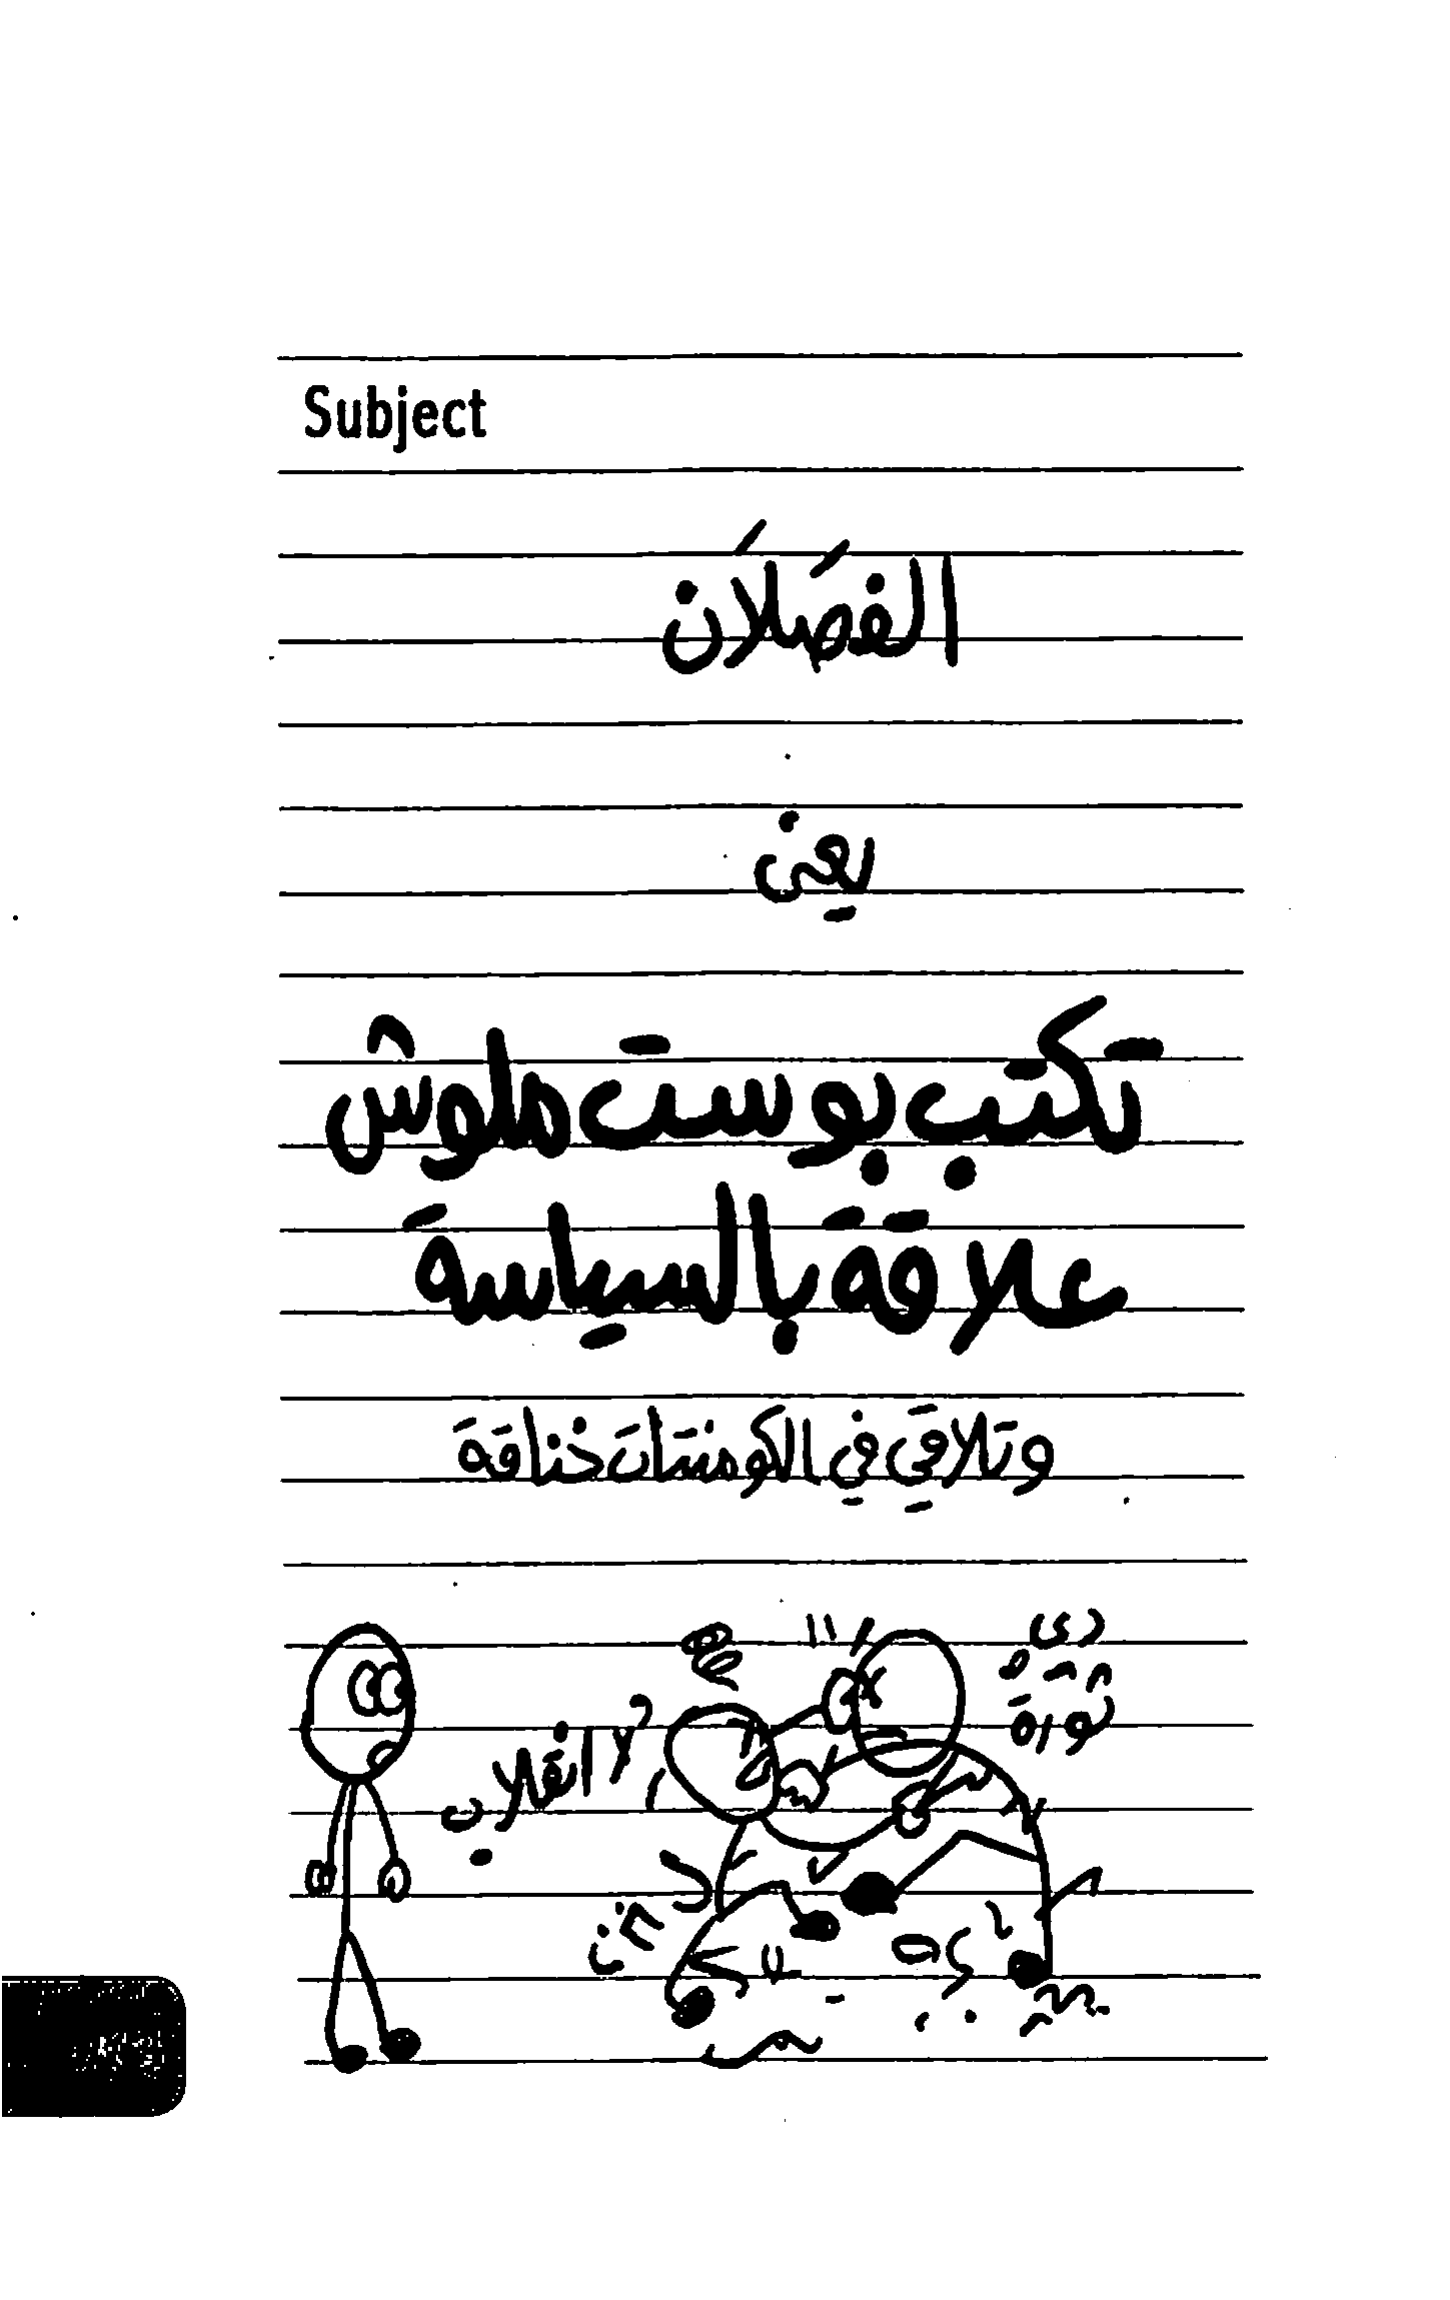 Subject
الفَصَلَان
يعني
تكتب بوست ملوش
علاقة بالسياسة
وتلاقي في الكومنتات خناقة
دي
ثورة
لا انقلاب